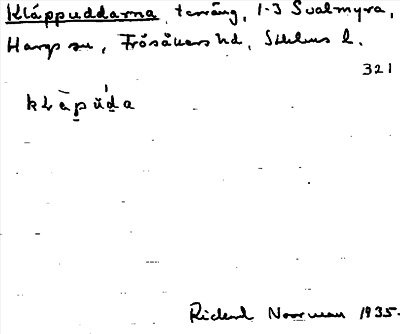 Kläppuddarna, terräng, 1-3 Svalmyra,
Hargs sn, Frösåkers hd, Sthlms l.
321
klāpùda
Richard Norrman 1935.